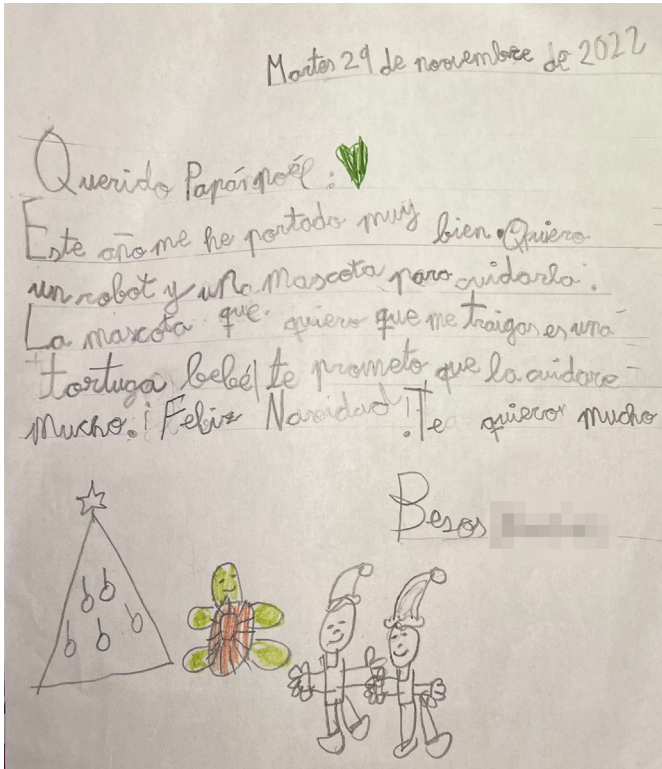 Martes 29 de noovembre de 2022
Querido Papá noél:
Este año me he portado muy bien. Quiero
un robot y una mascota para cuidarla.
La mascota que quiero que me traigas es una
tortuga bebé/ te prometo que la cuidare
mucho. ¡Feliz Navidad! Te quiero mucho
Besos